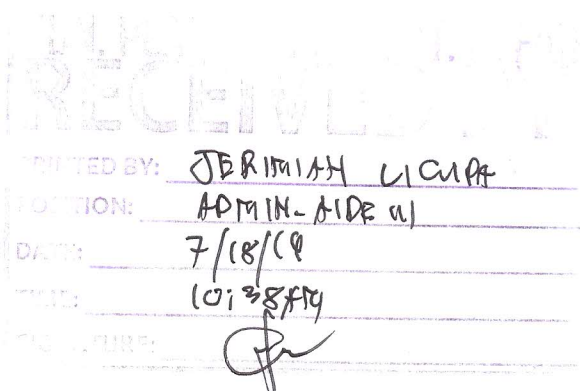 RECEIVED
PRINTED BY: JERIMIAH LICUPA
POSITION: ADMIN-AIDE VI
DATE: 7/18/19
TIME: 10:38AM
SIGNATURE: